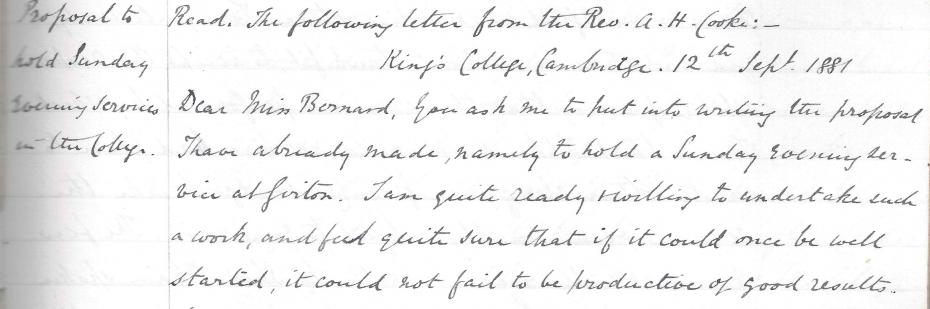 Proposal to
hold Sunday
Evening Services
in the College.
Read. The following letter from the Rev. A. H. Cooke:—
King's College, Cambridge. 12th Sept. 1881
Dear Miss Bernard, You ask me to put into writing the proposal
I have already made, namely to hold a Sunday Evening Ser-
vice at Girton. I am quite ready & willing to undertake such
a work, and feel quite sure that if it could once be well
started, it could not fail to be productive of good results.